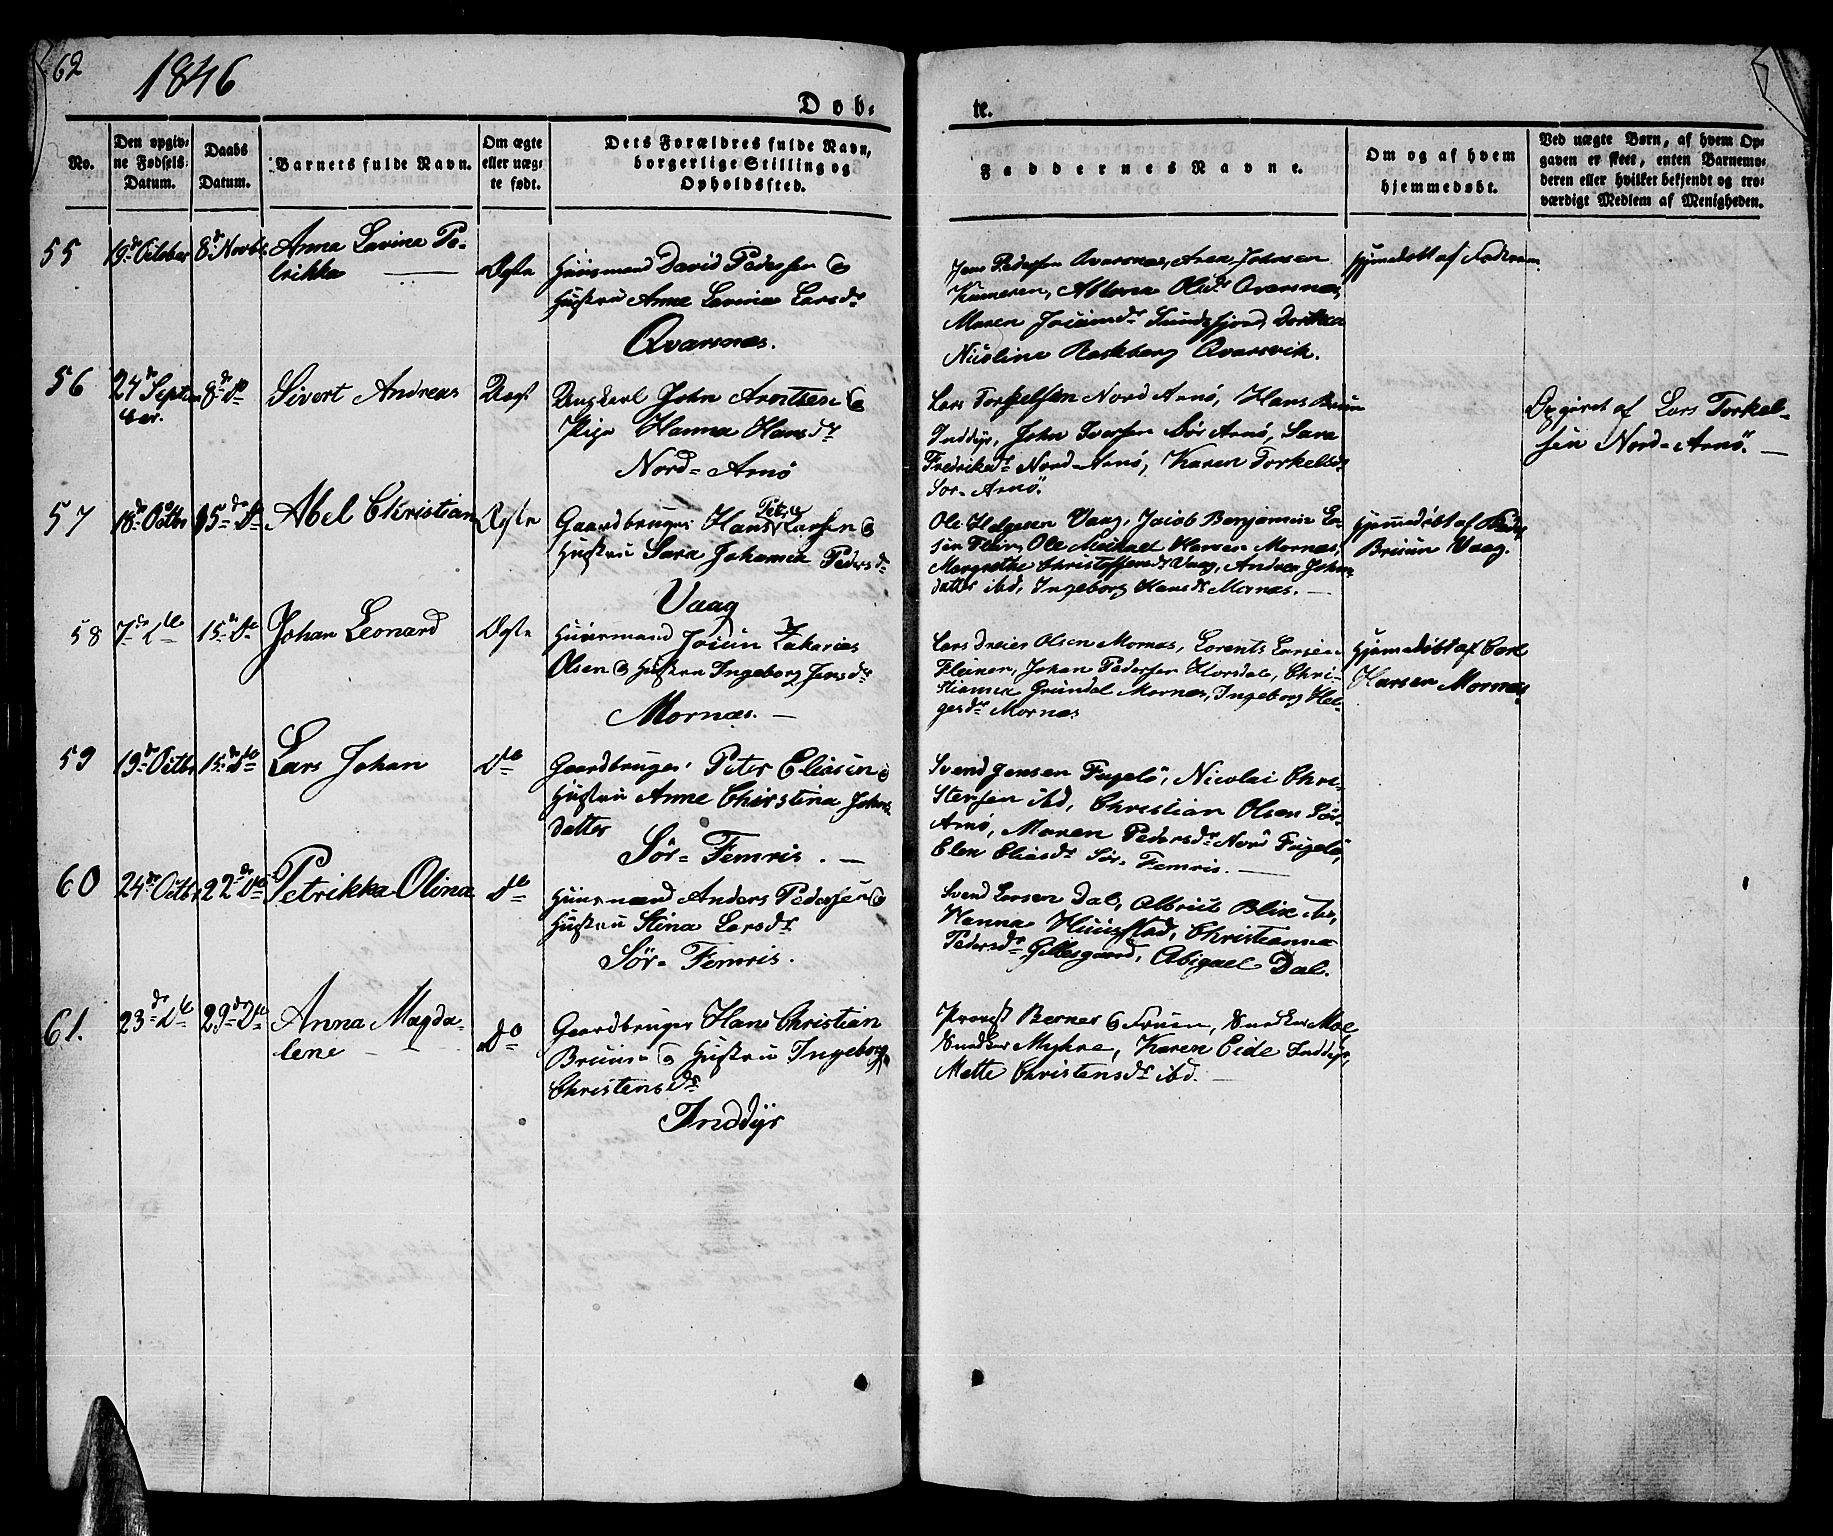 62
1846
Døb-
te.
No.
Den opgiv-
ne Fødsels-
Datum.
Daabs
Datum.
Barnets fulde Navn.
Om ægte
eller uæg-
te født.
Dets Forældres fulde Navn,
borgerlige Stilling og
Opholdssted.
Faddernes Navne.
Om og af hvem
hjemmedøbt.
Ved uægte Børn, af hvem Op-
gaven er skeet, enten Barnemo-
deren eller hvilket bekjendt og tro-
værdigt Medlem af Menigheden.
55
19de October
8de Novbr
Anna Lavina Pe-
trikka
Ægte
Huusmand David Pedersen &
Hustru Anne Lavina Larsdr
Qvarsnæs.
Jens Pedersen Qvarsnæs, Aron Johnsen
Kumeren, Albona Olsdr Qvarsnæs,
Maren Joramdr Sundsfjord, Dorthea
Nicoline Raskberg Qvarsvik.
Hjemdøbt af Faderen
56
24de Septem-
ber.
8de Do
Sivert Andreas
Uægt
Ungkarl John Arntsen &
Pige Hanna Hansdr
Nord-Arnö
Lars Torkelsen Nord Arnö, Hans Bruun
Inddyr, John Iversen Sör Arnö, Sara
Fredriksdr Nord-Arnö, Karen Torkelsdr
Sör-Arnö.
Opgivet af Lars Torkel-
sen Nord-Arnö.
57
18de Octbr
15de Do
Abel Christian
Ægte
Gaardbruger Hans Peter Larsen &
Hustru Sara Johanna Pedersdr
Vaag
Ole Helgesen Vaag, Jacob Benjamin La-
sen Flein, Ole Meikael Hansen Mornæs,
Margrethe Christoffersdr Vaag, Andrea Johns-
datter ibd, Ingeborg Hansdr Mornæs.
Hjemmedöbt af
Bruun Vaag.
58
7de Do
15de Do
Johan Leonard
Ægte
Huusmand Joiim Zakarias
Olsen & Hustru Ingeborg Jensdr
Mornæs.
Lars Dreier Olsen Mornæs, Lorents Larsen
Fleinen, Johan Pedersen Horsdal, Chri-
stianna Grundal Mornæs, Ingeborg Hel-
gesdr Mornæs
Hjemmedöbt af Carl
Hansen Mornæs
59
19de Octbr
15de Do
Lars Johan
Do
Gaardbruger Peter Eliasen &
Hustru Anne Christina Johns-
datter
Sör-Femris.
Svend Jensen Fugelö, Nicolai Chri-
stensen ibd, Christian Olsen Sör-
Arnö, Maren Pedersdr Nord Fugelö,
Elen Eliasdr Sör-Femris.
60
24de Octbr
22de Do
Petrikka Olina
Do
Huusmand Anders Pedersen &
Hustru Stina Larsdr
Sör-Femris.
Svend Larsen Dal, Albrikt Blix ibd,
Hanna Hiuistad, Christianna
Pedersdr Gillesgaard, Abigael Dal.
61.
23de Do
29de Do
Anna Magda-
lene
Do
Gaardbruger Hans Christian
Bruun & Hustru Ingeborg
Christensdr
Inddyr
Provst Berner & Fruen, Snedker Moe
Snedker Myhre, Karen Eide Inddyr,
Mette Christensdr ibd.